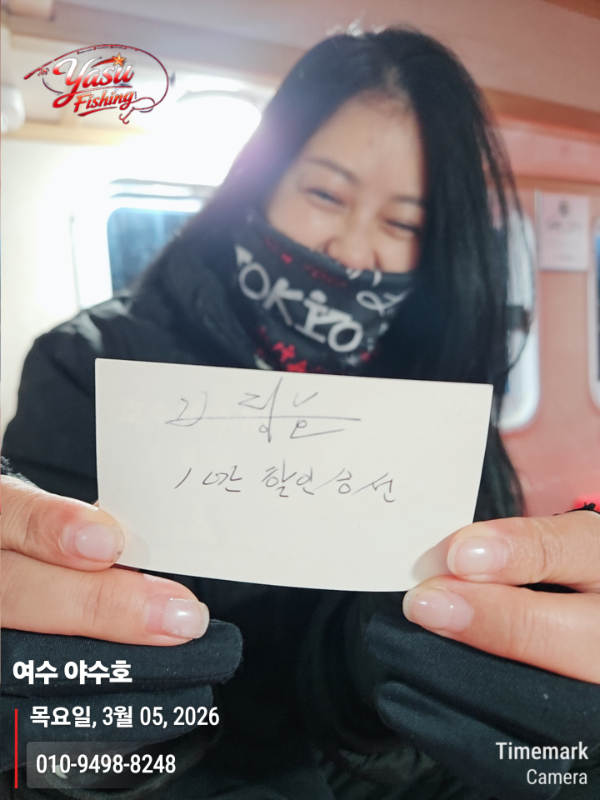 Yasu
Fishing
TOKYO
1만 할인승선
여수 야수호
목요일, 3월 05, 2026
010-9498-8248
Timemark
Camera